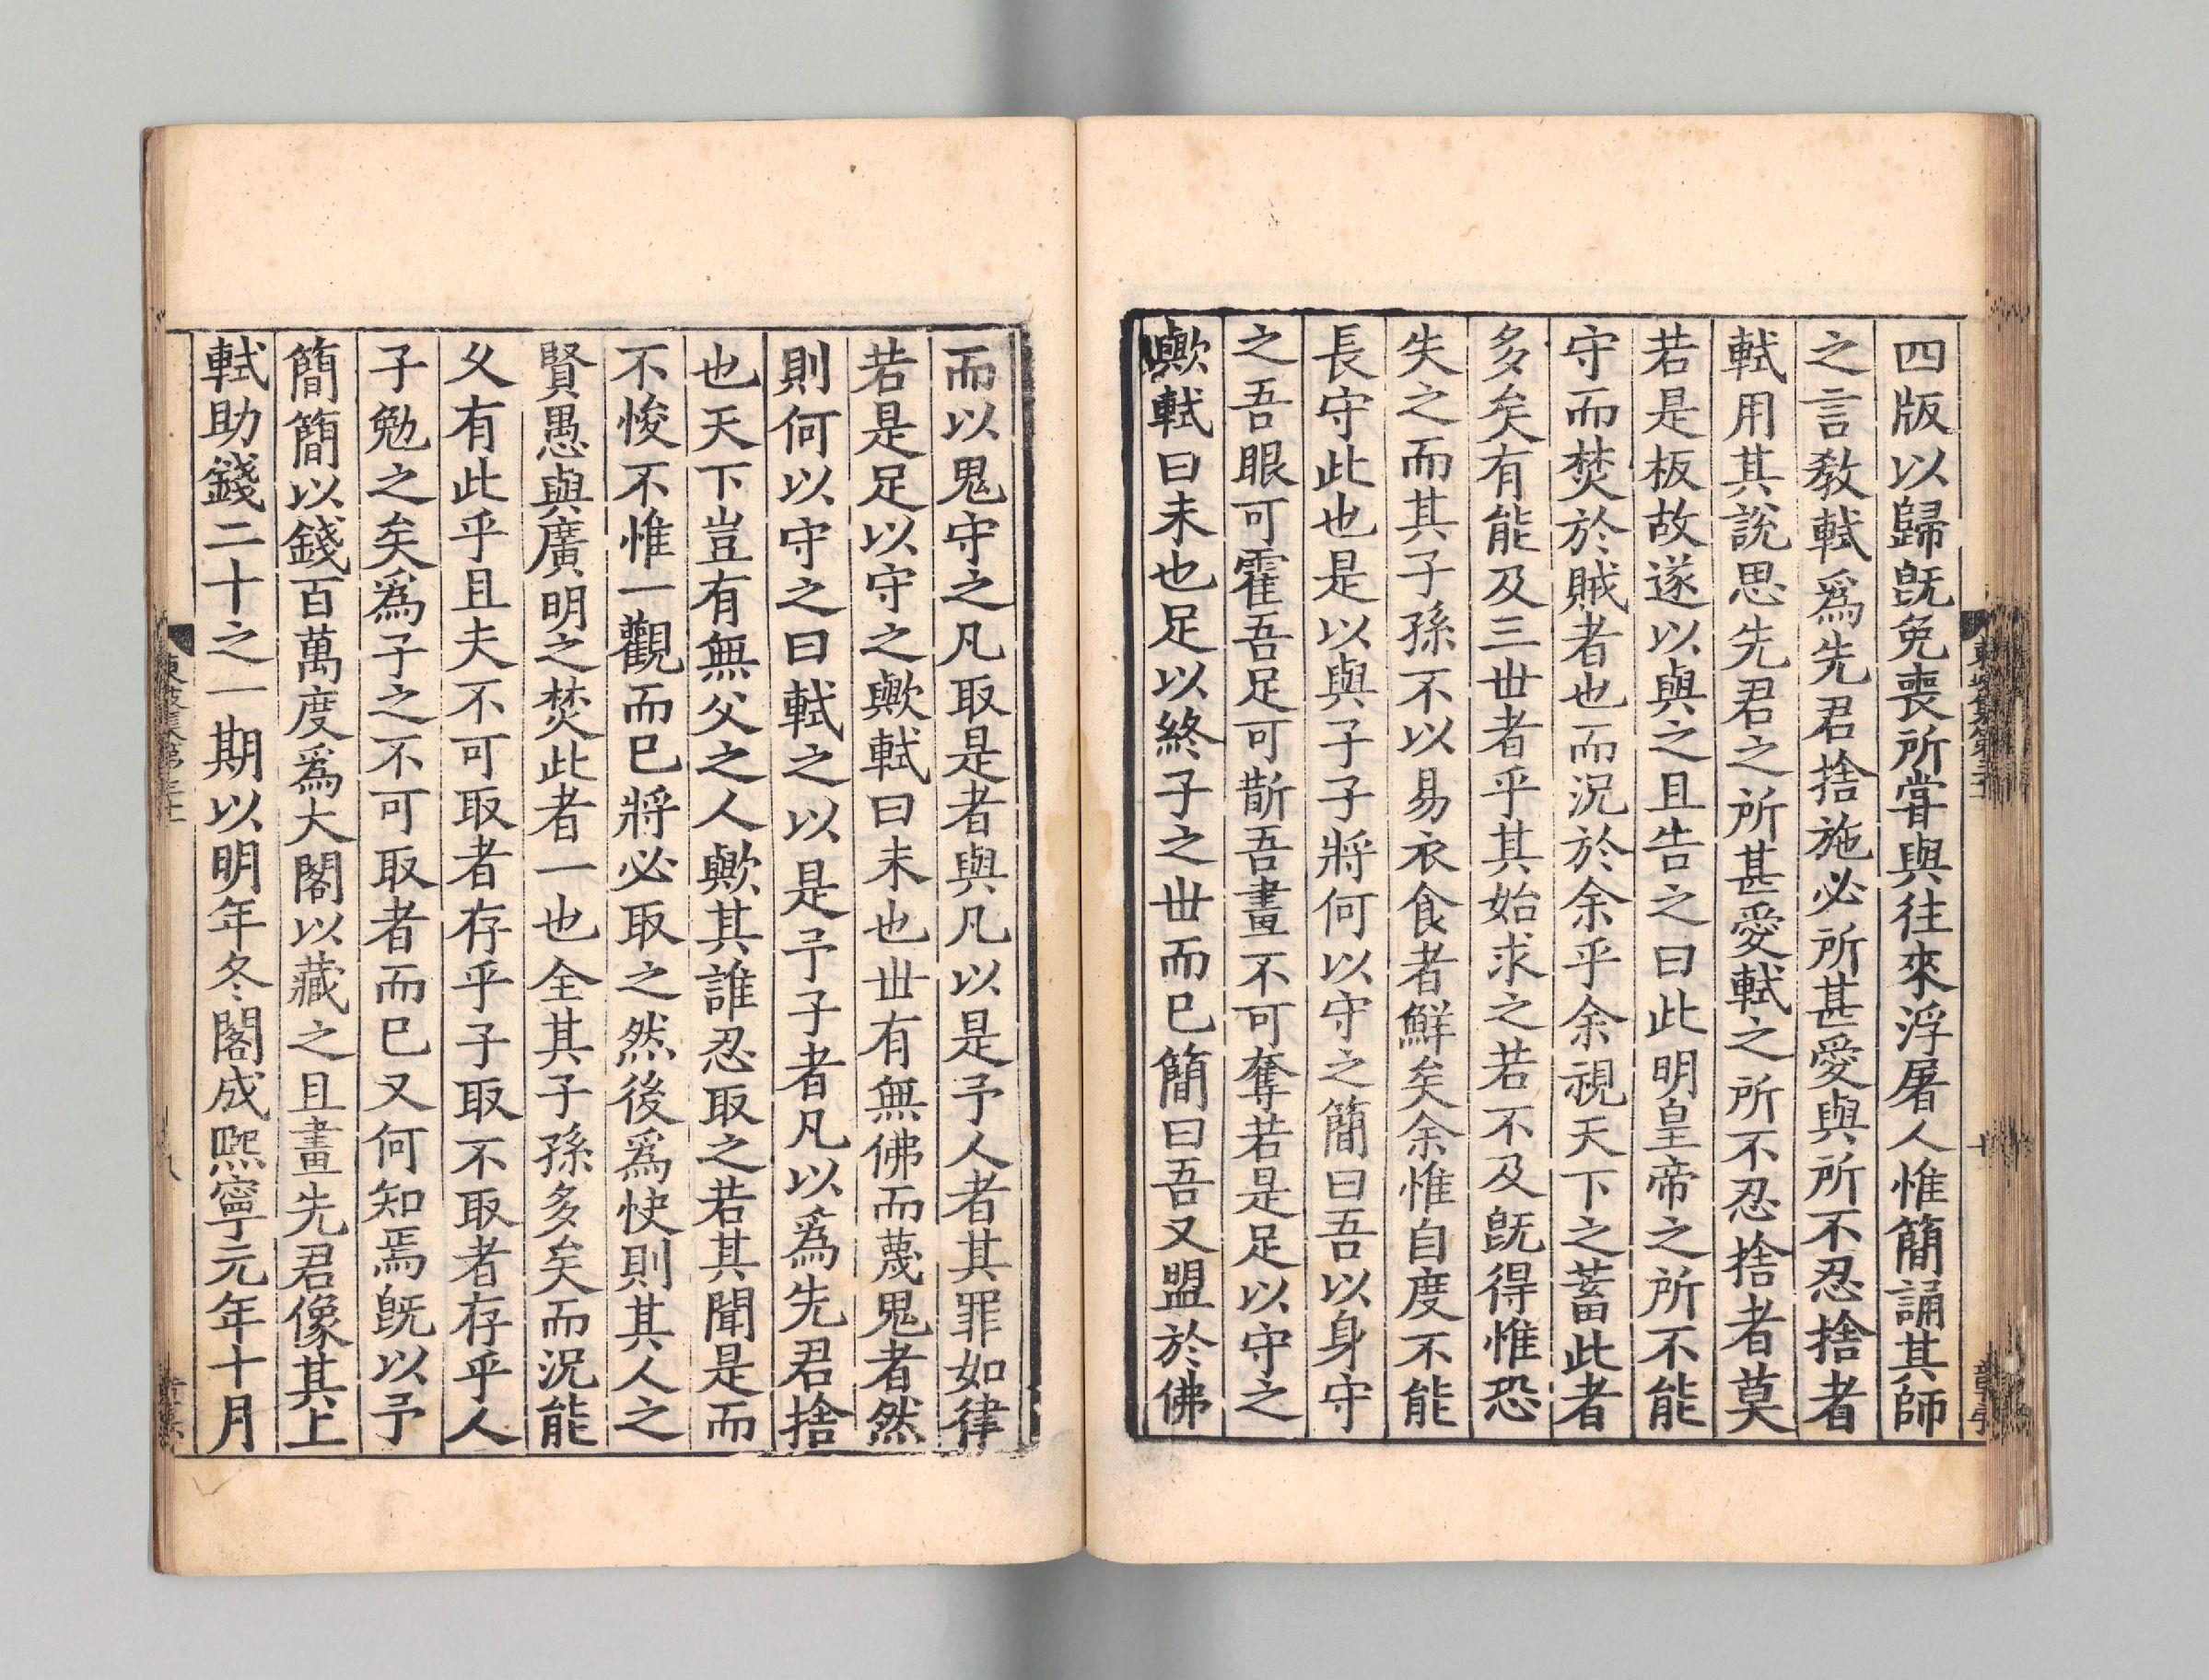 四版以歸旣免喪所甞與往來浮屠人惟簡誦其師
之言敎軾爲先君捨施必所甚愛與所不忍捨者
軾用其說思先君之所甚愛軾之所不忍捨者莫
若是板故遂以與之且告之曰此明皇帝之所不能
守而焚於賊者也而況於余乎余視天下之蓄此者
多矣有能及三世者乎其始求之若不及旣得惟恐
失之而其子孫不以易衣食者鮮矣余惟自度不能
長守此也是以與子子將何以守之簡曰吾以身守
之吾眼可霍吾足可斮吾畫不可奪若是足以守之
歟軾曰未也足以終子之世而已簡曰吾又盟於佛
而以鬼守之凡取是者與凡以是予人者其罪如律
若是足以守之歟軾曰未也世有無佛而蔑鬼者然
則何以守之曰軾之以是予子者凡以爲先君捨
也天下豈有無父之人歟其誰忍取之若其聞是而
不悛不惟一觀而已將必取之然後爲快則其人之
賢愚與廣明之焚此者一也全其子孫多矣而況能
乆有此乎且夫不可取者存乎子取不取者存乎人
子勉之矣爲子之不可取者而已又何知焉旣以予
簡簡以錢百萬度爲大閣以藏之且畫先君像其上
軾助錢二十之一期以明年冬閣成熈寧元年十月